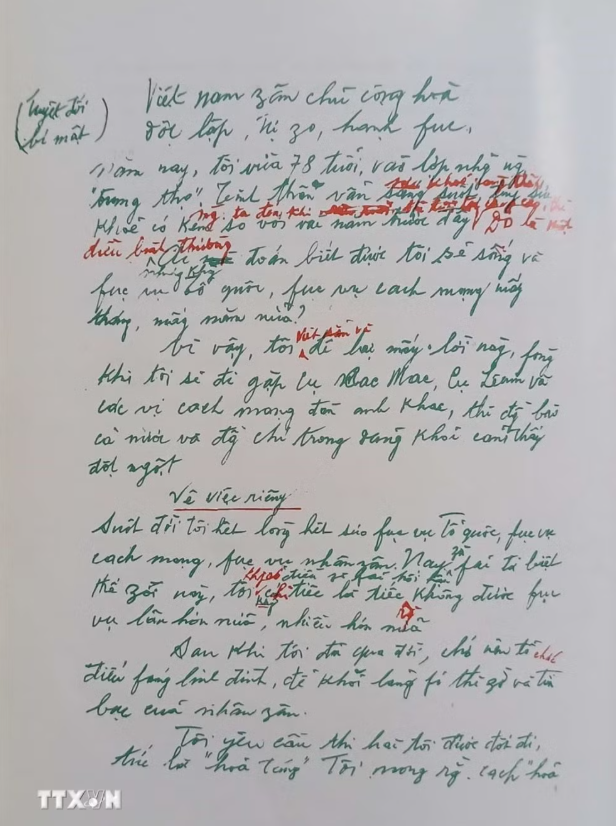 (tuyệt đối
bí mật)
Việt nam zân chủ cộng hoà
độc lập, tự zo, hạnh fúc.
Năm nay, tôi vừa 78 tuổi, vào lớp những ng
"trung thọ". Tinh thần vẫn sáng suốt,
khoẻ có kém so với vài năm trước đây. Đó là một
điều bình thường
Ai mà đoán biết được tôi sẽ sống và
fục vụ tổ quốc, fục vụ cách mạng mấy
tháng, mấy năm nữa?
Vì vậy, tôi viết sẵn và để lại mấy lời này, fòng
khi tôi sẽ đi gặp Cụ Các Mác, Cụ Lênin và
các vị cách mạng đàn anh khác, thì đ bào
cả nước và đ chí trong đảng khỏi cảm thấy
đột ngột.
Về việc riêng
Suốt đời tôi hết lòng hết sức fục vụ Tổ quốc, fục vụ
cách mạng, fục vụ nhân zân. Nay zù fải từ biệt
thế zới này, tôi không có điều gì fải hối hận
chỉ tiếc là tiếc không được fục
vụ lâu hơn nữa, nhiều hơn nữa
Sau khi tôi đã qua đời, chớ nên tổ chức
điếu fúng linh đình, để khỏi lãng fí thì zờ và tiền
bạc của nhân zân.
Tôi yêu cầu thi hài tôi được đốt đi,
tức là "hoả táng". Tôi mong rằ cách "hoả
TTXVN